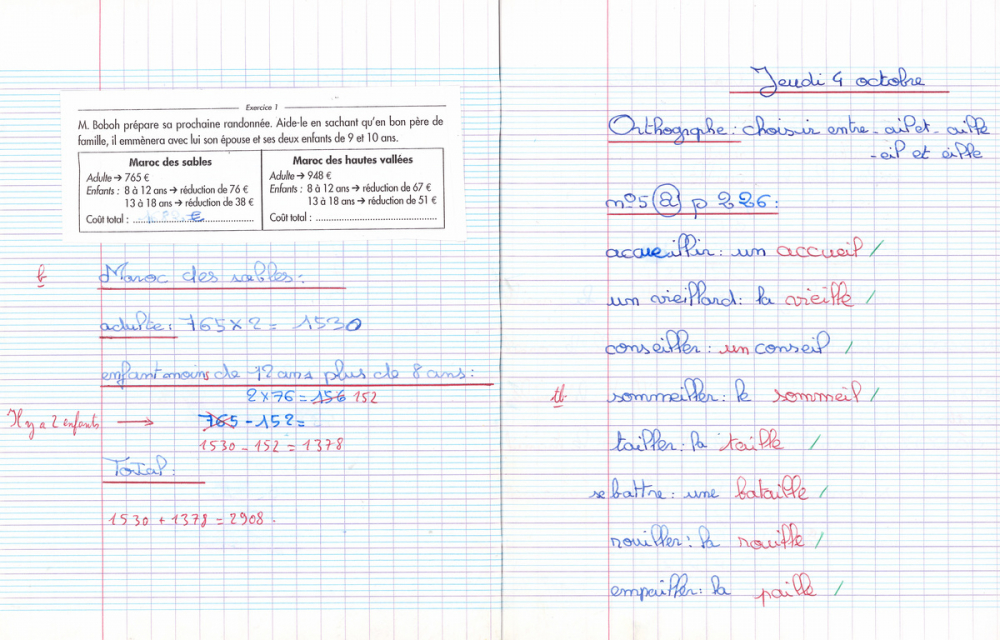 Exercice 1
M. Boboh prépare sa prochaine randonnée. Aide-le en sachant qu'en bon père de
famille, il emmènera avec lui son épouse et ses deux enfants de 9 et 10 ans.
Maroc des sables
Adulte → 765 €
Enfants : 8 à 12 ans → réduction de 76 €
13 à 18 ans → réduction de 38 €
Coût total : .......... €
Maroc des hautes vallées
Adulte → 948 €
Enfants : 8 à 12 ans → réduction de 67 €
13 à 18 ans → réduction de 51 €
Coût total : ..........
Maroc des sables :
adulte : 765 × 2 = 1530
enfant moins de 12 ans plus de 8 ans :
2 × 76 = 156 152
Il y a 2 enfants → 765 - 152 =
1530 - 152 = 1378
Total :
1530 + 1378 = 2908.
Jeudi 4 octobre
Orthographe : choisir entre -ail et -aille
-eil et eille
n°5 a p 226 :
accueillir : un accueil /
un vieillard : la vieille /
conseiller : un conseil /
tb sommeiller : le sommeil /
tailler : la taille /
se battre : une bataille /
rouiller : la rouille /
empailler : la paille /